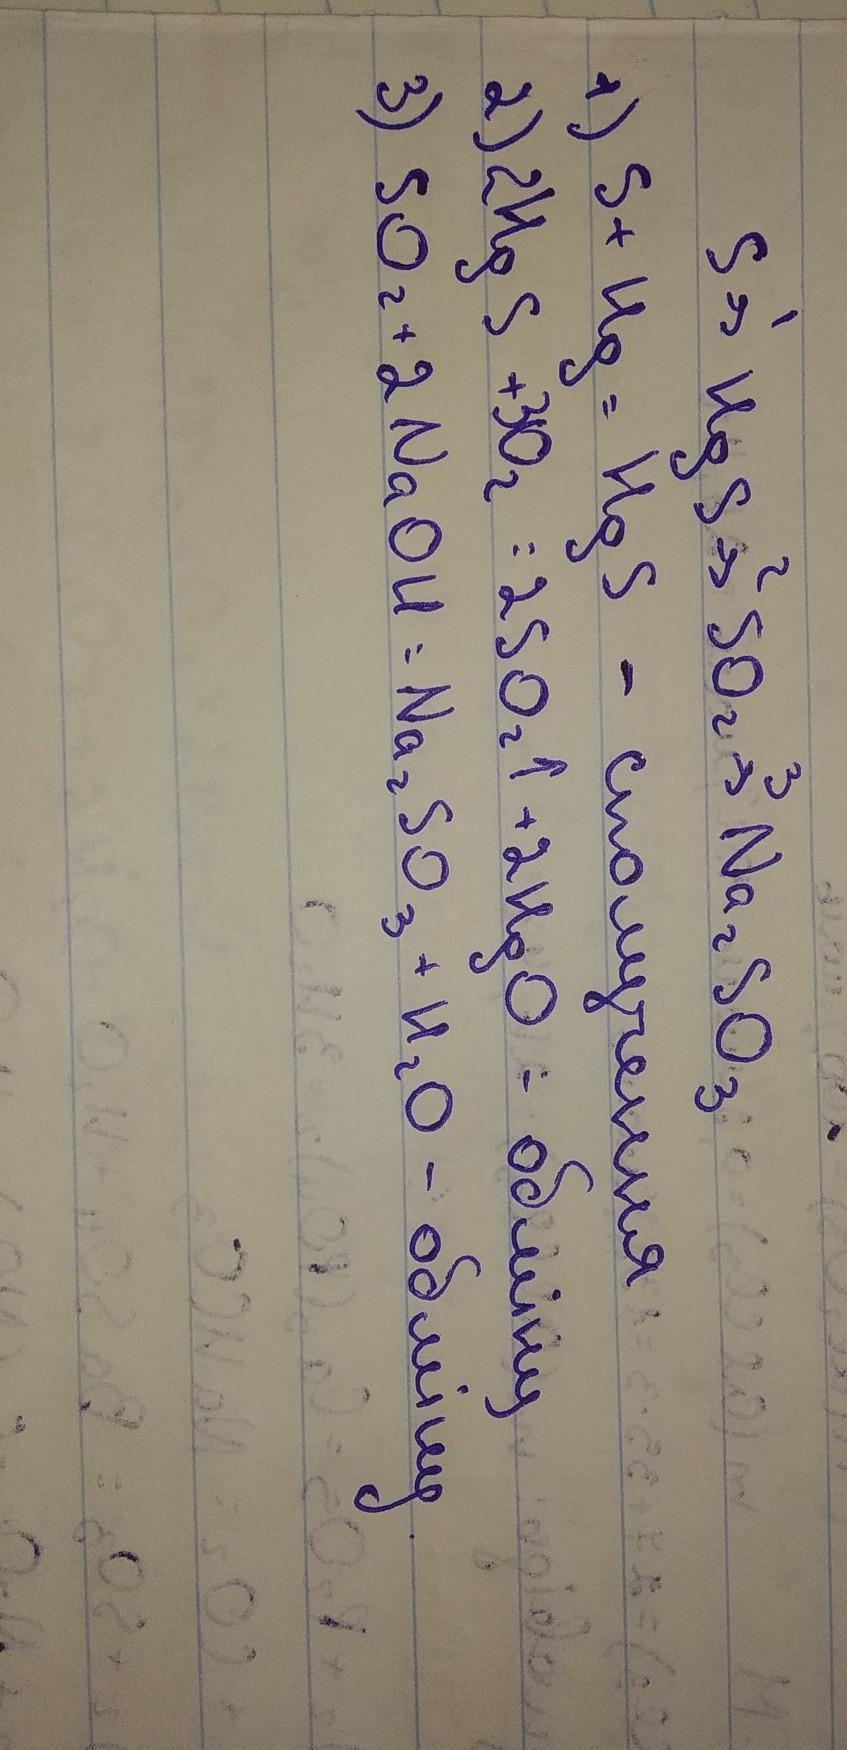 S → HgS → SO₂ → Na₂SO₃
1) S + Hg = HgS - сполучення
2) 2HgS + 3O₂ = 2SO₂↑ + 2HgO - обміну
3) SO₂ + 2NaOH = Na₂SO₃ + H₂O - обміну.